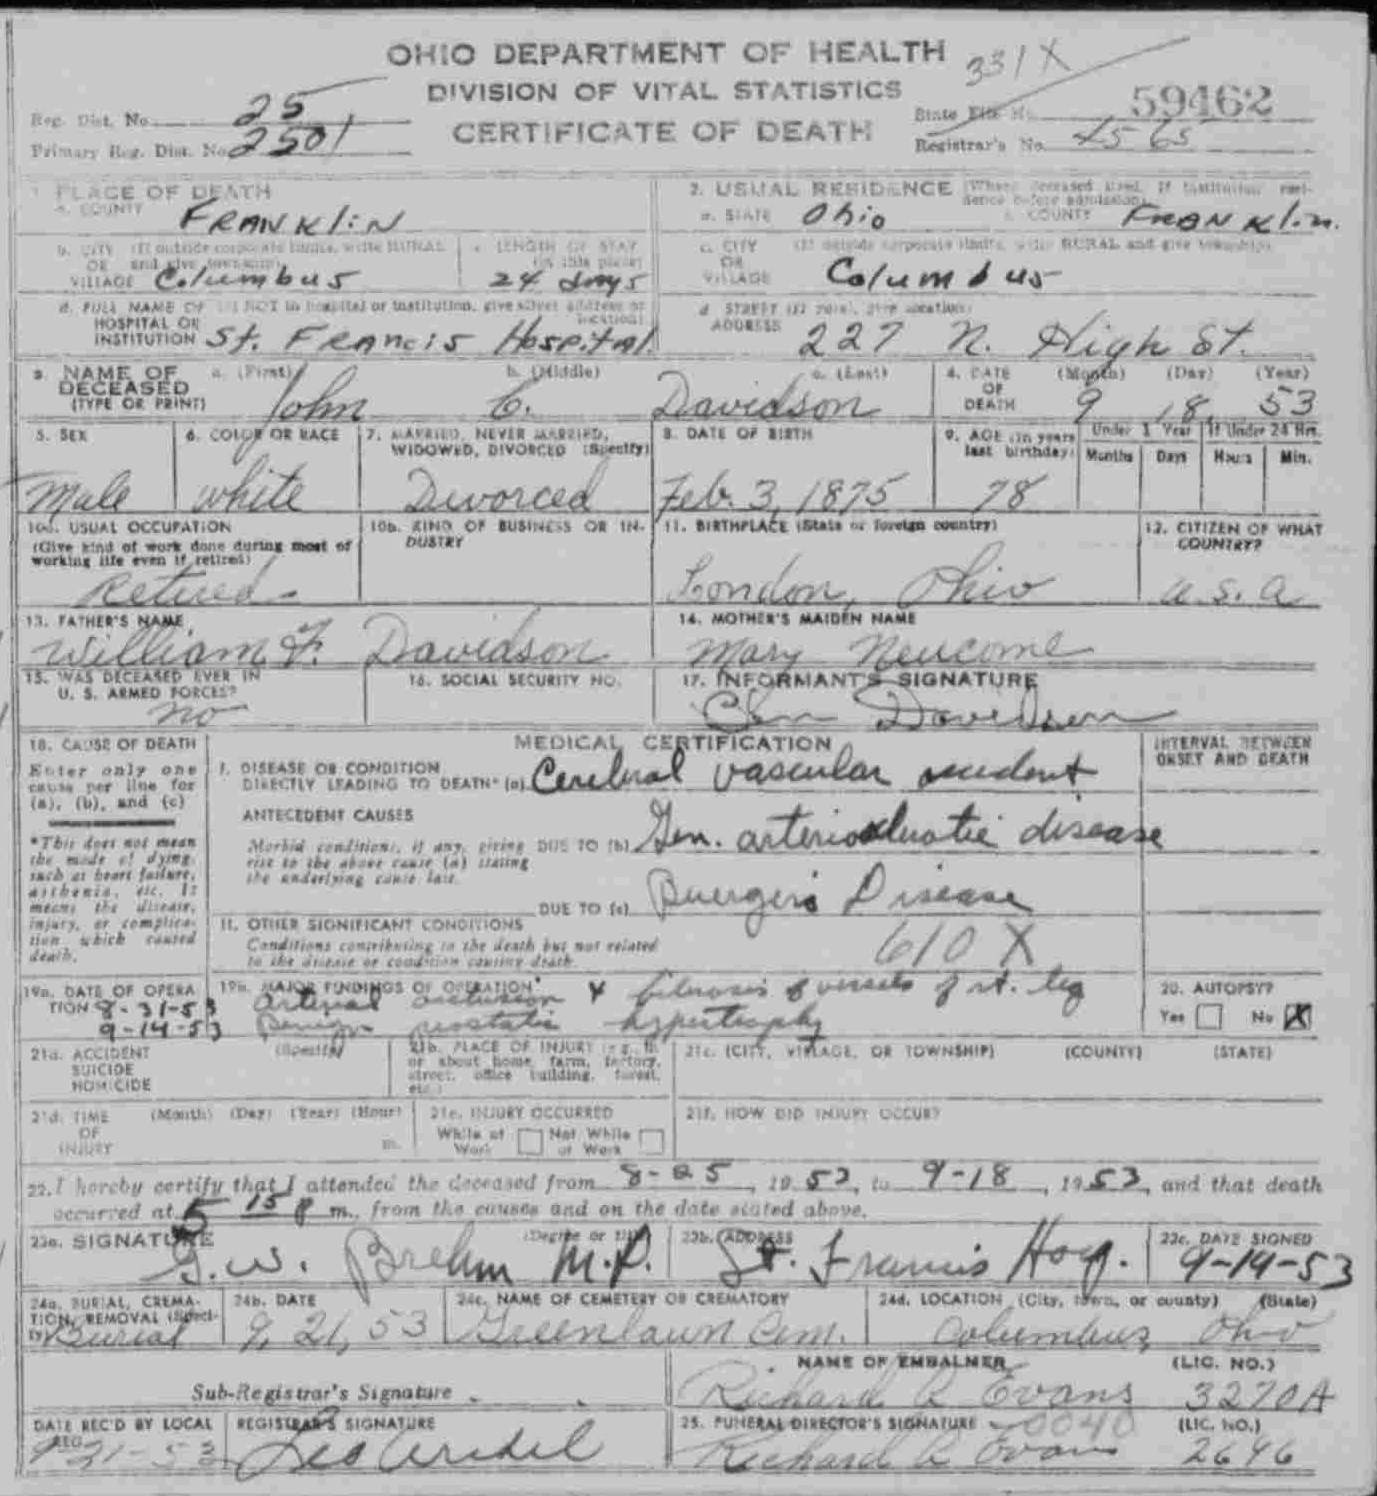 OHIO DEPARTMENT OF HEALTH
DIVISION OF VITAL STATISTICS
CERTIFICATE OF DEATH
331X
Reg. Dist. No. 25
Primary Reg. Dist. No. 2501
State File No. 59462
Registrar's No. 4565
1. PLACE OF DEATH
a. COUNTY FRANKLIN
2. USUAL RESIDENCE (Where deceased lived. If institution: residence before admission)
a. STATE Ohio b. COUNTY FRANKlin.
b. CITY (If outside corporate limits, write RURAL
OR and give township)
VILLAGE Columbus
c. LENGTH OF STAY
(in this place)
24 days
c. CITY (If outside corporate limits, write RURAL and give township)
OR
VILLAGE Columbus
d. FULL NAME OF (If NOT in hospital or institution, give street address or
HOSPITAL OR location)
INSTITUTION St. Francis Hospital.
d. STREET (If rural, give location)
ADDRESS 227 N. High St.
3. NAME OF a. (First) b. (Middle) c. (Last)
DECEASED
(TYPE OR PRINT) John C. Davidson
4. DATE (Month) (Day) (Year)
OF
DEATH 9 18, 53
5. SEX
Male
6. COLOR OR RACE
White
7. MARRIED, NEVER MARRIED,
WIDOWED, DIVORCED (Specify)
Divorced
8. DATE OF BIRTH
Feb. 3, 1875
9. AGE (In years
last birthday)
78
Under 1 Year
Months Days
If Under 24 Hrs.
Hours Min.
10a. USUAL OCCUPATION
(Give kind of work done during most of
working life even if retired)
Retired
10b. KIND OF BUSINESS OR IN-
DUSTRY
11. BIRTHPLACE (State or foreign country)
London, Ohio
12. CITIZEN OF WHAT
COUNTRY?
U.S.A
13. FATHER'S NAME
William F. Davidson
14. MOTHER'S MAIDEN NAME
Mary Neucome
15. WAS DECEASED EVER IN
U. S. ARMED FORCES?
no
16. SOCIAL SECURITY NO.
17. INFORMANT'S SIGNATURE
Davidson
18. CAUSE OF DEATH
Enter only one
cause per line for
(a), (b), and (c)
*This does not mean
the mode of dying,
such as heart failure,
asthenia, etc. It
means the disease,
injury, or complica-
tion which caused
death.
MEDICAL CERTIFICATION
INTERVAL BETWEEN
ONSET AND DEATH
I. DISEASE OR CONDITION
DIRECTLY LEADING TO DEATH* (a) Cerebral vascular accident
ANTECEDENT CAUSES
Morbid conditions, if any, giving DUE TO (b) Gen. arteriosclerotic disease
rise to the above cause (a) stating
the underlying cause last.
DUE TO (c) Buerger's Disease
II. OTHER SIGNIFICANT CONDITIONS
Conditions contributing to the death but not related
to the disease or condition causing death.
610 X
19a. DATE OF OPERA
TION 8-31-53
9-14-53
19b. MAJOR FINDINGS OF OPERATION
Arterial occlusion & fibrosis of vessels of rt. leg
Benign prostatic hypertrophy
20. AUTOPSY?
Yes No X
21a. ACCIDENT (Specify)
SUICIDE
HOMICIDE
21b. PLACE OF INJURY (e.g., in
or about home, farm, factory,
street, office building, forest,
etc.)
21c. (CITY, VILLAGE, OR TOWNSHIP) (COUNTY) (STATE)
21d. TIME (Month) (Day) (Year) (Hour)
OF
INJURY m.
21e. INJURY OCCURRED
While at Not While
Work at Work
21f. HOW DID INJURY OCCUR?
22. I hereby certify that I attended the deceased from 8-25, 1953, to 9-18, 1953, and that death
occurred at 5 15 P m., from the causes and on the date stated above.
23a. SIGNATURE (Degree or title)
G.W. Brehm M.D.
23b. ADDRESS
St. Francis Hosp.
23c. DATE SIGNED
9-19-53
24a. BURIAL, CREMA-
TION, REMOVAL (Speci-
fy) Burial
24b. DATE
9, 21, 53
24c. NAME OF CEMETERY OR CREMATORY
Greenlawn Cem.
24d. LOCATION (City, town, or county) (State)
Columbus, Ohio
Sub-Registrar's Signature
NAME OF EMBALMER (LIC. NO.)
Richard R Evans 3270A
DATE REC'D BY LOCAL
REG.
9-21-53
REGISTRAR'S SIGNATURE
25. FUNERAL DIRECTOR'S SIGNATURE 0040 (LIC. NO.)
Richard R Evans 2646